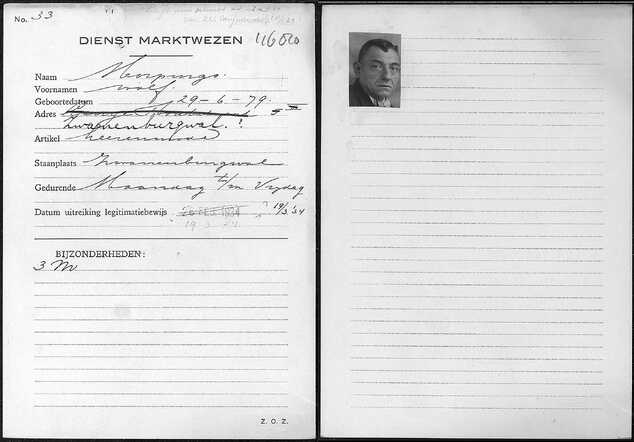 No. 33
DIENST MARKTWEZEN
Naam
Voornamen Wolf.
Geboortedatum 29-6-79.
Adres 5 III
Zwanenburgwal. 1.
Artikel Heerenmode
Staanplaats Zwanenburgwal
Gedurende Maandag t/m Vrijdag
Datum uitreiking legitimatiebewijs 26 FEB. 1934 19/3 '34
19.3.34.
BIJZONDERHEDEN:
3 M
Z. O. Z.